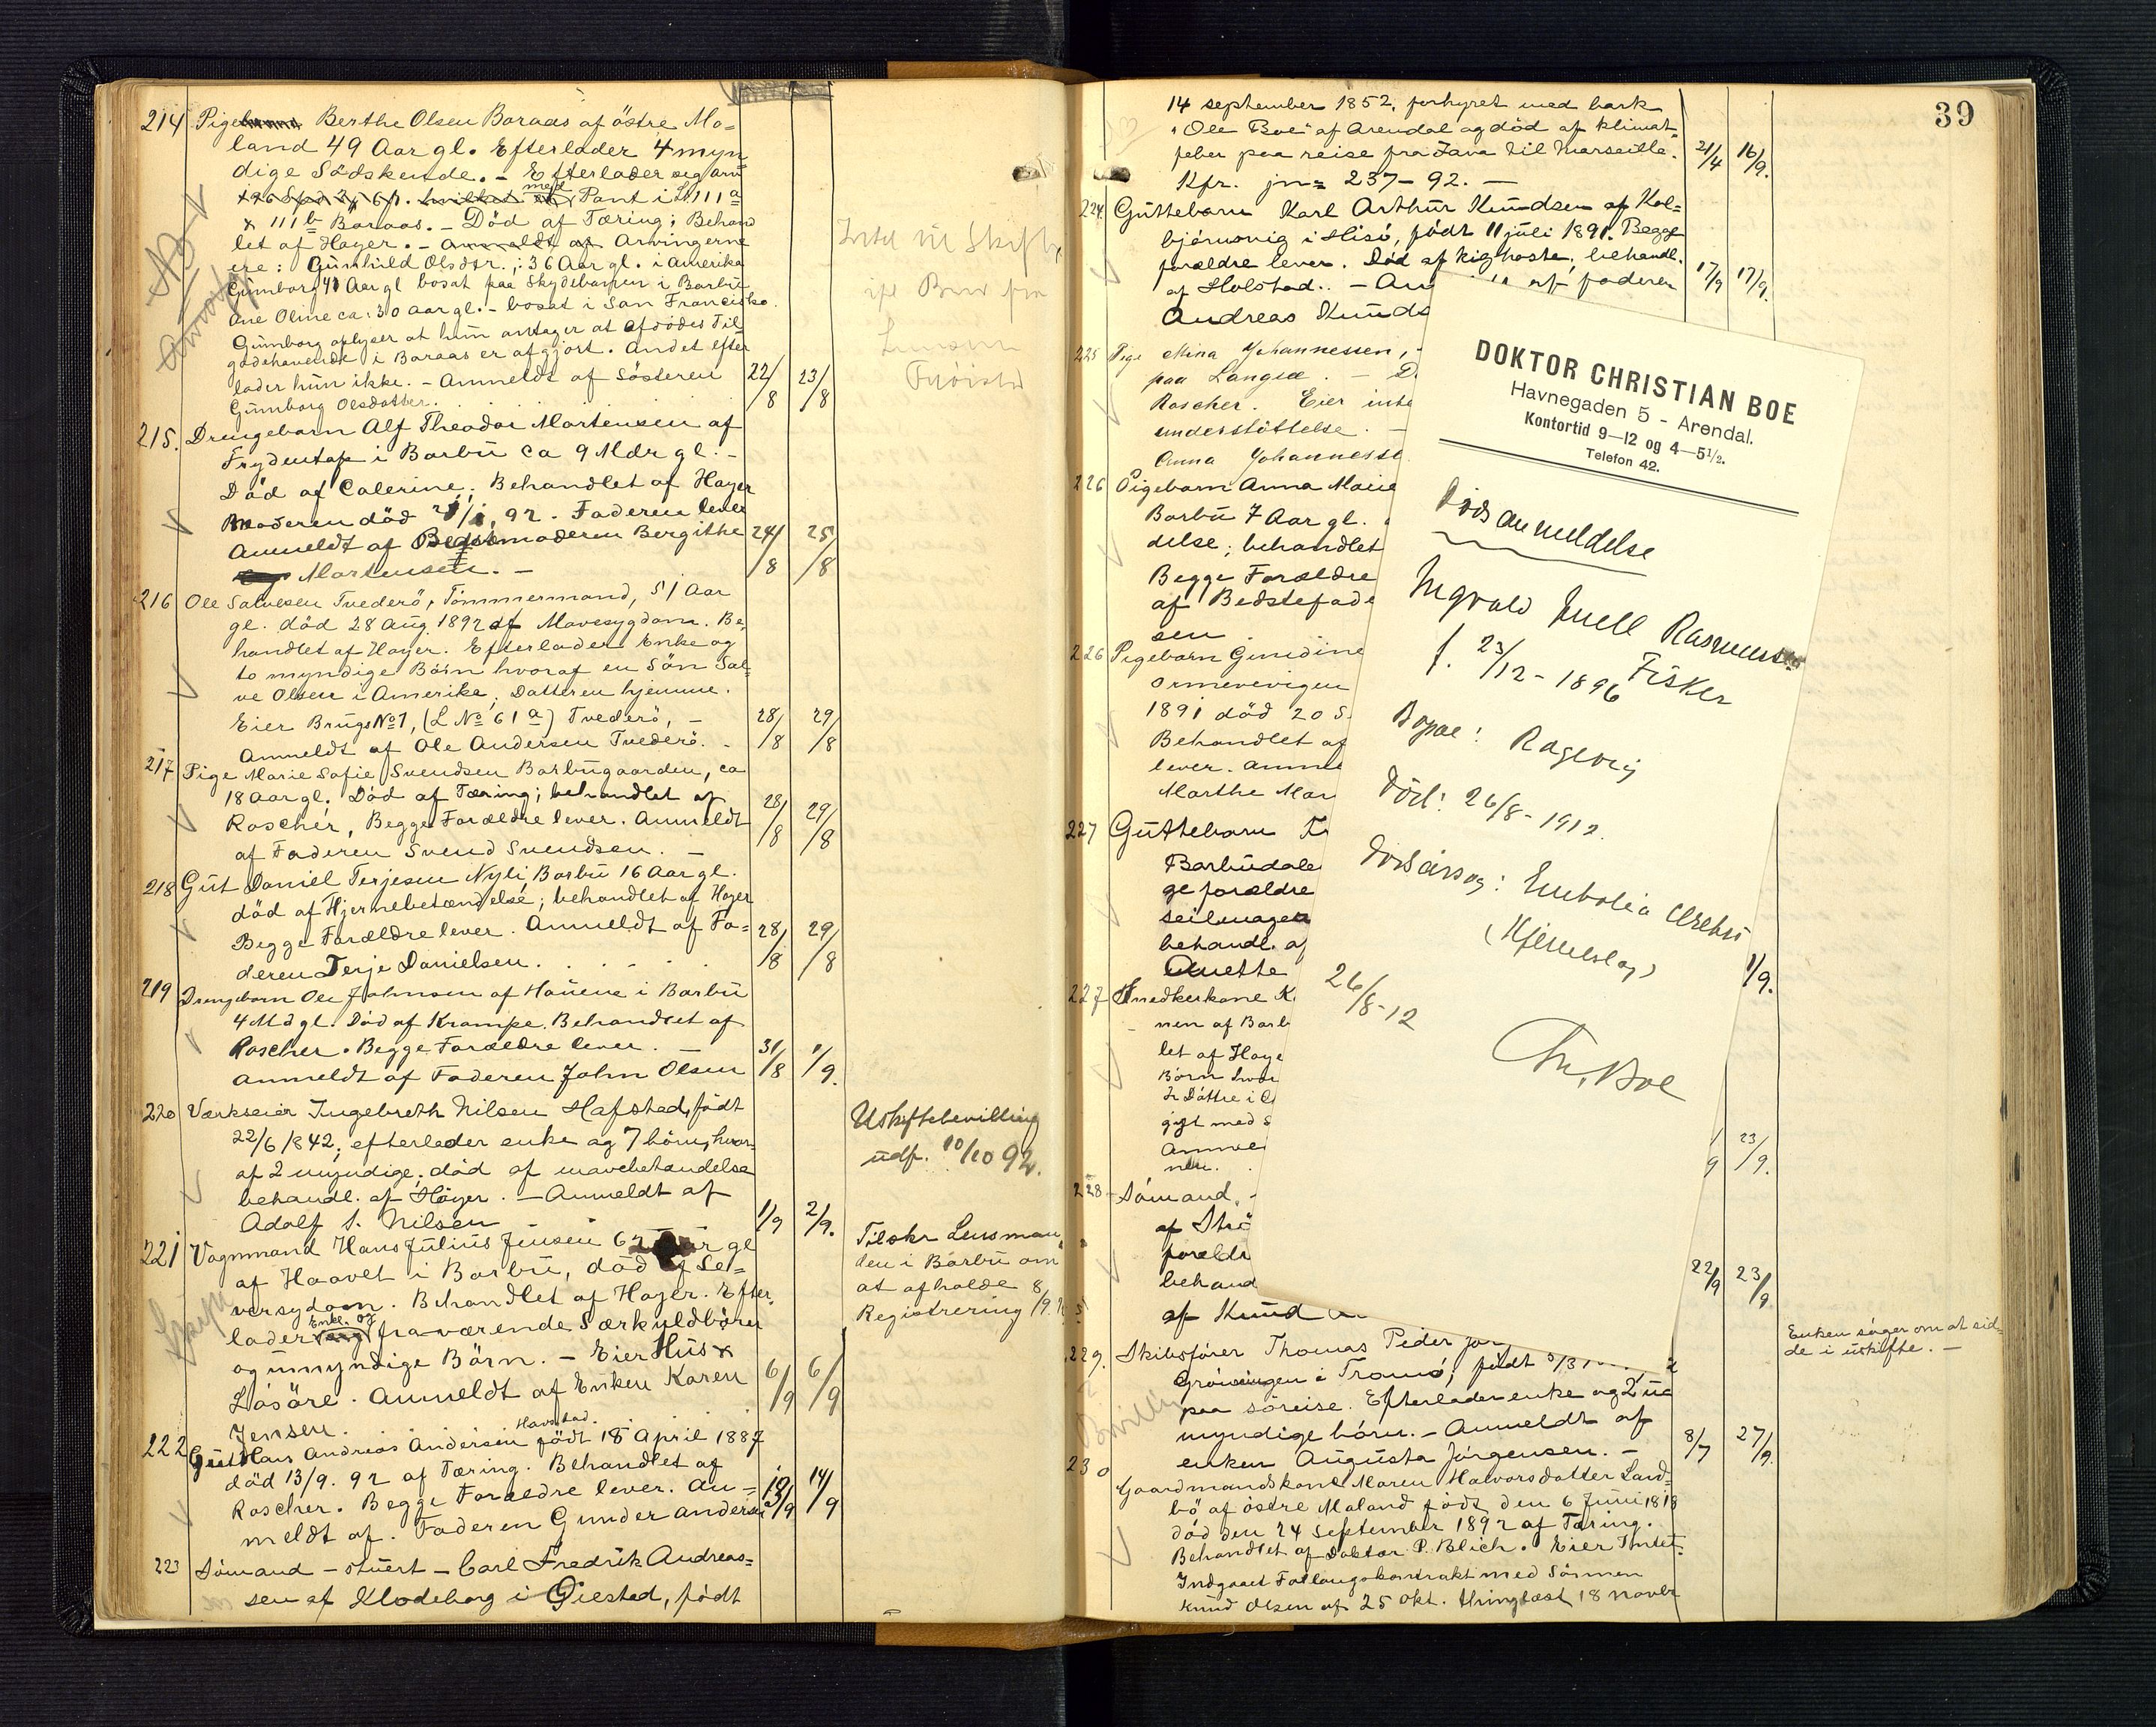 214 Pige Berthe Olsen Baraas af östre Mo=
land 49 Aar gl. Efterlader 4 myn
dige Södskende. - Efterlader sig arv
med Pant i L. 111 a
x 111 b Baraas. - Död af Tæring; Behand
let af Hoyer. - Anmeldt af Arvingerne
ere: Gunhild Olsdtr. ; 36 Aar gl. i Amerika
Gumborg 41 Aar gl bosat paa Skydebanen i Barbu
Ane Oline ca: 30 Aar gl. - bosat i San Francisko.
Gumborg oplyser at hun antager at Afdödes Til
godehavende i Baraas er afgjort. Andet efter
lader hun ikke. - Anmeldt af Södsteren 22/8 23/8
Gumborg Olsdatter.
215. Drengebarn Alf Theodor Mortensen af
Frydentop i Barbu ca 9 Mdr gl. -
Död af Colerine; Behandlet af Hoyer
Moderen död 92. Faderen lever
Anmeldt af Bedstemoderen Bergithe 24/8 25/8
Mortensen. -
216 Ole Salvesen Tvederö, Tömmermand, 51 Aar
gl. död 28 Aug 1892 af Mavesygdom. Be,
handlet af Hoyer. Efterlader Enke og
to myndige Börn hvoraf en Sön Sal=
ve Olsen i Amerika, Datteren hjemme.
Eier Brugs No 1, (L No 61 a) Tvederö, - 28/8 29/8
Anmeldt af Ole Andersen Tvederö. -
217 Pige Marie Sofie Svendsen Barbugaarden, ca
18 Aar gl. Död af Tæring; behandlet af
Roscher, Begge Forældre lever. Anmeldt 28/8 29/8
af Faderen Svend Svendsen. -
218 Gut Daniel Terjesen Nyli Barbu 16 Aar gl.
död af Hjernebetændelse; behandlet af Hoyer
Begge Forældre lever. Anmeldt af Fa= 28/8 29/8
deren Terje Danielsen. . . - - .
219 Drengebarn Ole Johnsen af Hauene i Barbu
4 Md gl. Död af Krampe. Behandlet af
Roscher. Begge Forældre lever. -
Anmeldt af Faderen John Olsen 31/8 1/9.
220 Værkseier Ingebreth Nilsen Hafsted, födt
22/6 1842; efterlader enke og 7 börn, hvor=
af 2 umyndige; död af mavebetændelse
behandl. af Höyer. - Anmeldt af
Adolf S. Nilsen 1/9 2/9.
Uskiftebevilling
udf. 10/10 92.
221 Vognmand Hans Julius Jensen 62 Aar gl
af Haavet i Barbu, död af Le=
versydom. Behandlet af Hoyer. Efter,
lader Enke og fraværende Særkuldbörn
og umyndige Börn. - Eier Hus x
Lösöre. Anmeldt af Enken Karen 6/9 6/9
Jensen.
Tilskr Lensman
den i Barbu om
at afholde
Registrering 8/9.
222 Gut Hans Andreas Andersen Havstad. födt 18 April 1887
död 13/9. 92 af Tæring. Behandlet af
Roscher. Begge Forældre lever. An= 13/9 14/9
meldt af. Faderen Gunder Andersen
223 Sömand - stuert - Carl Fredrik Andreas=
sen af Klodeborg i Öiestad, födt
39
14 september 1852, forhyret med bark
"Ole Boe" af Arendal og död af klimat=
feber paa reise fra Java til Marseille. 21/4 16/9.
Kfr. jn= 237-92. -
224. Guttebarn Karl Arthur Knudsen af Kol=
björnsvig i Hisö, födt 11 juli 1891. Begge
forældre lever. Död af kighoste, behandl.
af Holstad. - An af faderen 17/9 17/9.
Andreas Knuds
225 Pige Mina Johannessen,
paa Langsæ. - D
Roscher. Eier inte
understöttelse. -
Anna Johannesse
226 Pigebarn Anna Marie
Barbu 7 Aar gl.
delse; behandlet
Begge Forældre
af Bedstefade
sen.
226 Pigebarn Gunidine
Ormevevigen
1891 död 20 S.
Behandlet af
lever. Anme
Marthe Mar
227 Guttebarn
Barbudale
ge forældre
seilmager
behandl. af
Anette 1/9.
227 Snedkerkone K.
nen af Barb
let af Hoye
Börn hvor
gift med S
Anme
nen. . 23/9.
228 Sömand,
af Strö
foreldr
behand 22/9 23/9
af Knud
DOKTOR CHRISTIAN BOE
Havnegaden 5 - Arendal.
Kontortid 9—12 og 4—5½.
Telefon 42.
Dödsanmeldelse
Ingvald Juell Rasmussen
f. 23/12 - 1896 Fisker
Bopæl: Rægevig
Död: 26/8 - 1912.
Dödsårsag: Embolia cerebri
(Hjerneslag)
26/8-12
Chr. Boe
229. Skibsförer Thomas Peder Jör
Gröningen i Tromö, födt
paa söreise. Efterlader enke og 2 u=
myndige börn. - Anmeldt af
enken Augusta Jörgensen. - 8/7 27/9.
Enken söger om at sid=
de i uskifte. -
230 Gaardmandskone Maren Halvorsdatter Land=
bö af östre Moland födt den 6 Juni 1818
död den 24 September 1892 af Tæring.
Behandlet af Doktor P. Blich. Eier Intet.
Indgaaet Föllaugskontrakt med Sönnen
Knud Olsen af 25 okt. thinglæst 18 novbr